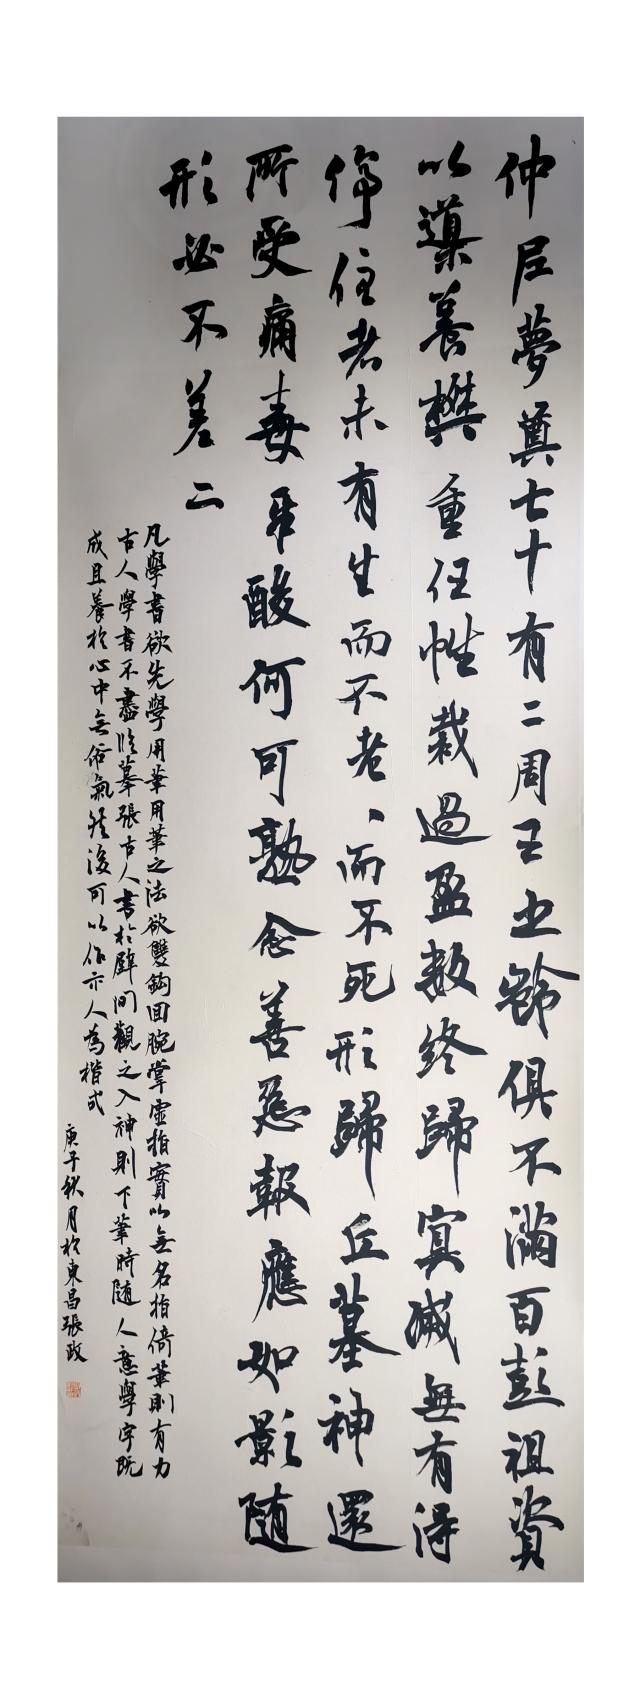 仲尼夢奠七十有二周王之齡俱不滿百彭祖資
以導養樊重任性裁過盈數終歸冥滅無有得
停住者未有生而不老、而不死形歸丘墓神還
所受痛毒辛酸何可熟念善惡報應如影随
形必不差二
凡學書欲先學用筆用筆之法欲雙鈎回腕掌虛指實以無名指倚筆則有力
古人學書不盡臨摹張古人書於壁間觀之入神則下筆時随人意學字既
成且養於心中無俗氣然後可以作示人為楷式
庚子秋月於東昌張政